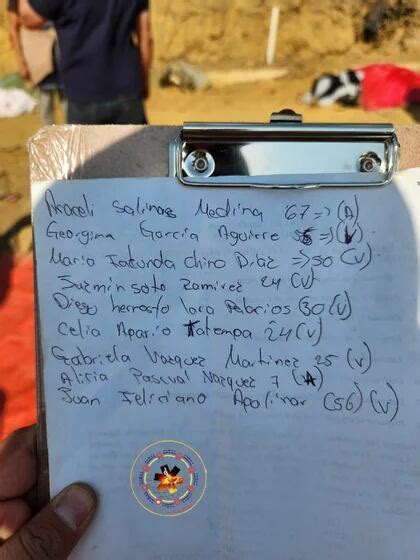 Araceli Salinas Medina 67 => (A)
Georgina García Aguirre => (V)
Maria Facunda Chino Diaz => 50 (V)
soto Ramirez 24 (V)
Diego lara 30 (V)
Celia Apario 24 (V)
Gabriela Vazquez Martinez 25 (V)
Alicia Pascual Vazquez 7
Juan Feliciano Apolinar (56) (V)